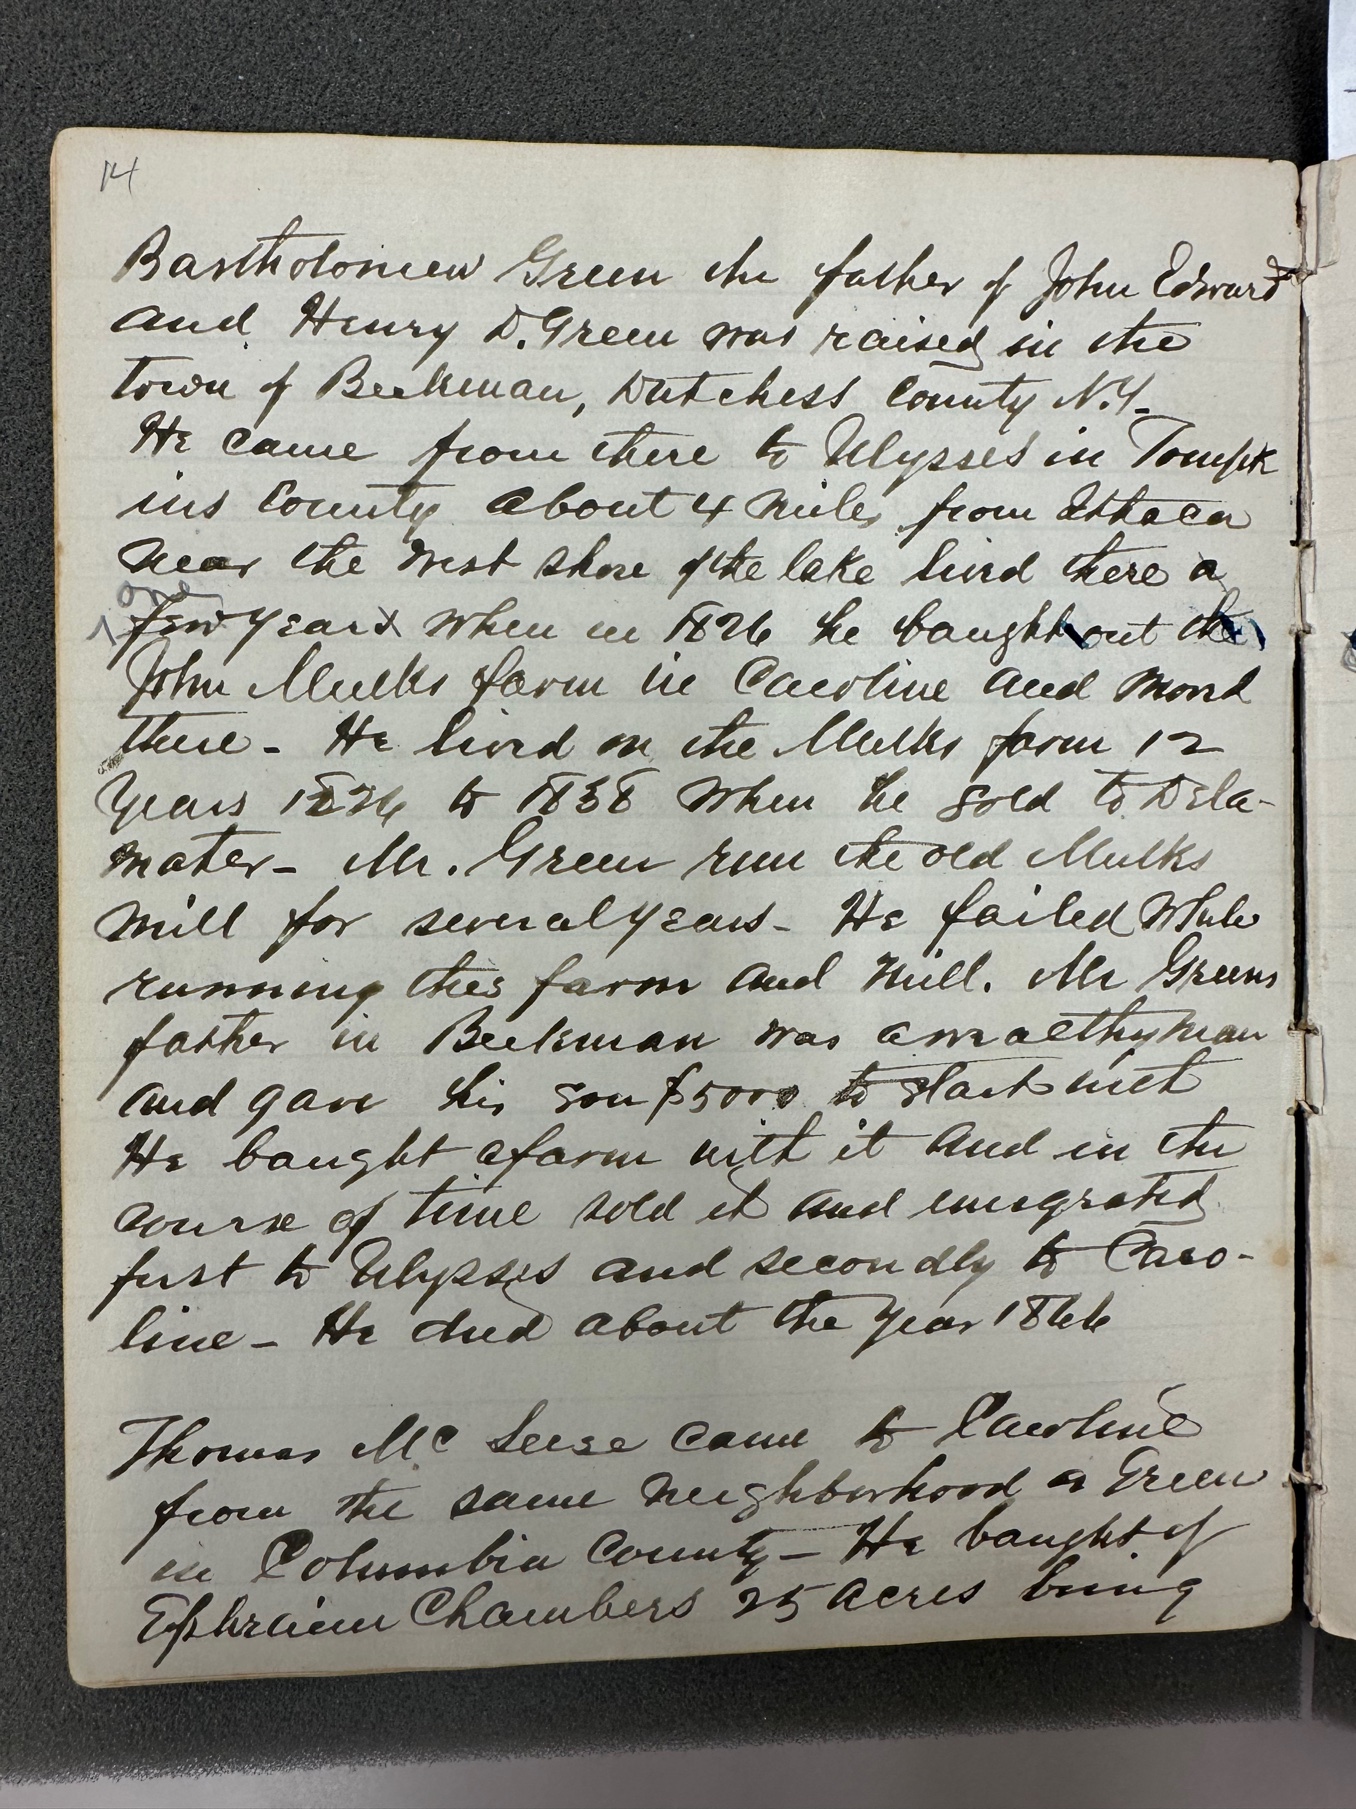 14
Bartholomew Green the father of John Edward
and Henry D. Green was raised in the
town of Beekman, Dutchess County N.Y.
He came from there to Ulysses in Tompk
ins County about 4 miles from Ithaca
near the west shore of the lake lived there a
one
few years when in 1826 he bought out the
John Mulks farm in Caroline and moved
there - He lived on the Mulks farm 12
years 1826 to 1838 when he sold to Dela-
mater - Mr. Green run the old Mulks
mill for several years - He failed while
running this farm and mill. Mr Greens
father in Beekman was a wealthy man
and gave his son $5000 to start with
He bought a farm with it and in the
course of time sold it and emigrated
first to Ulysses and secondly to Caro-
line - He died about the year 1866
Thomas Mc Leese came to Caroline
from the same neighborhood as Green
in Columbia County - He bought of
Ephraim Chambers 25 acres being